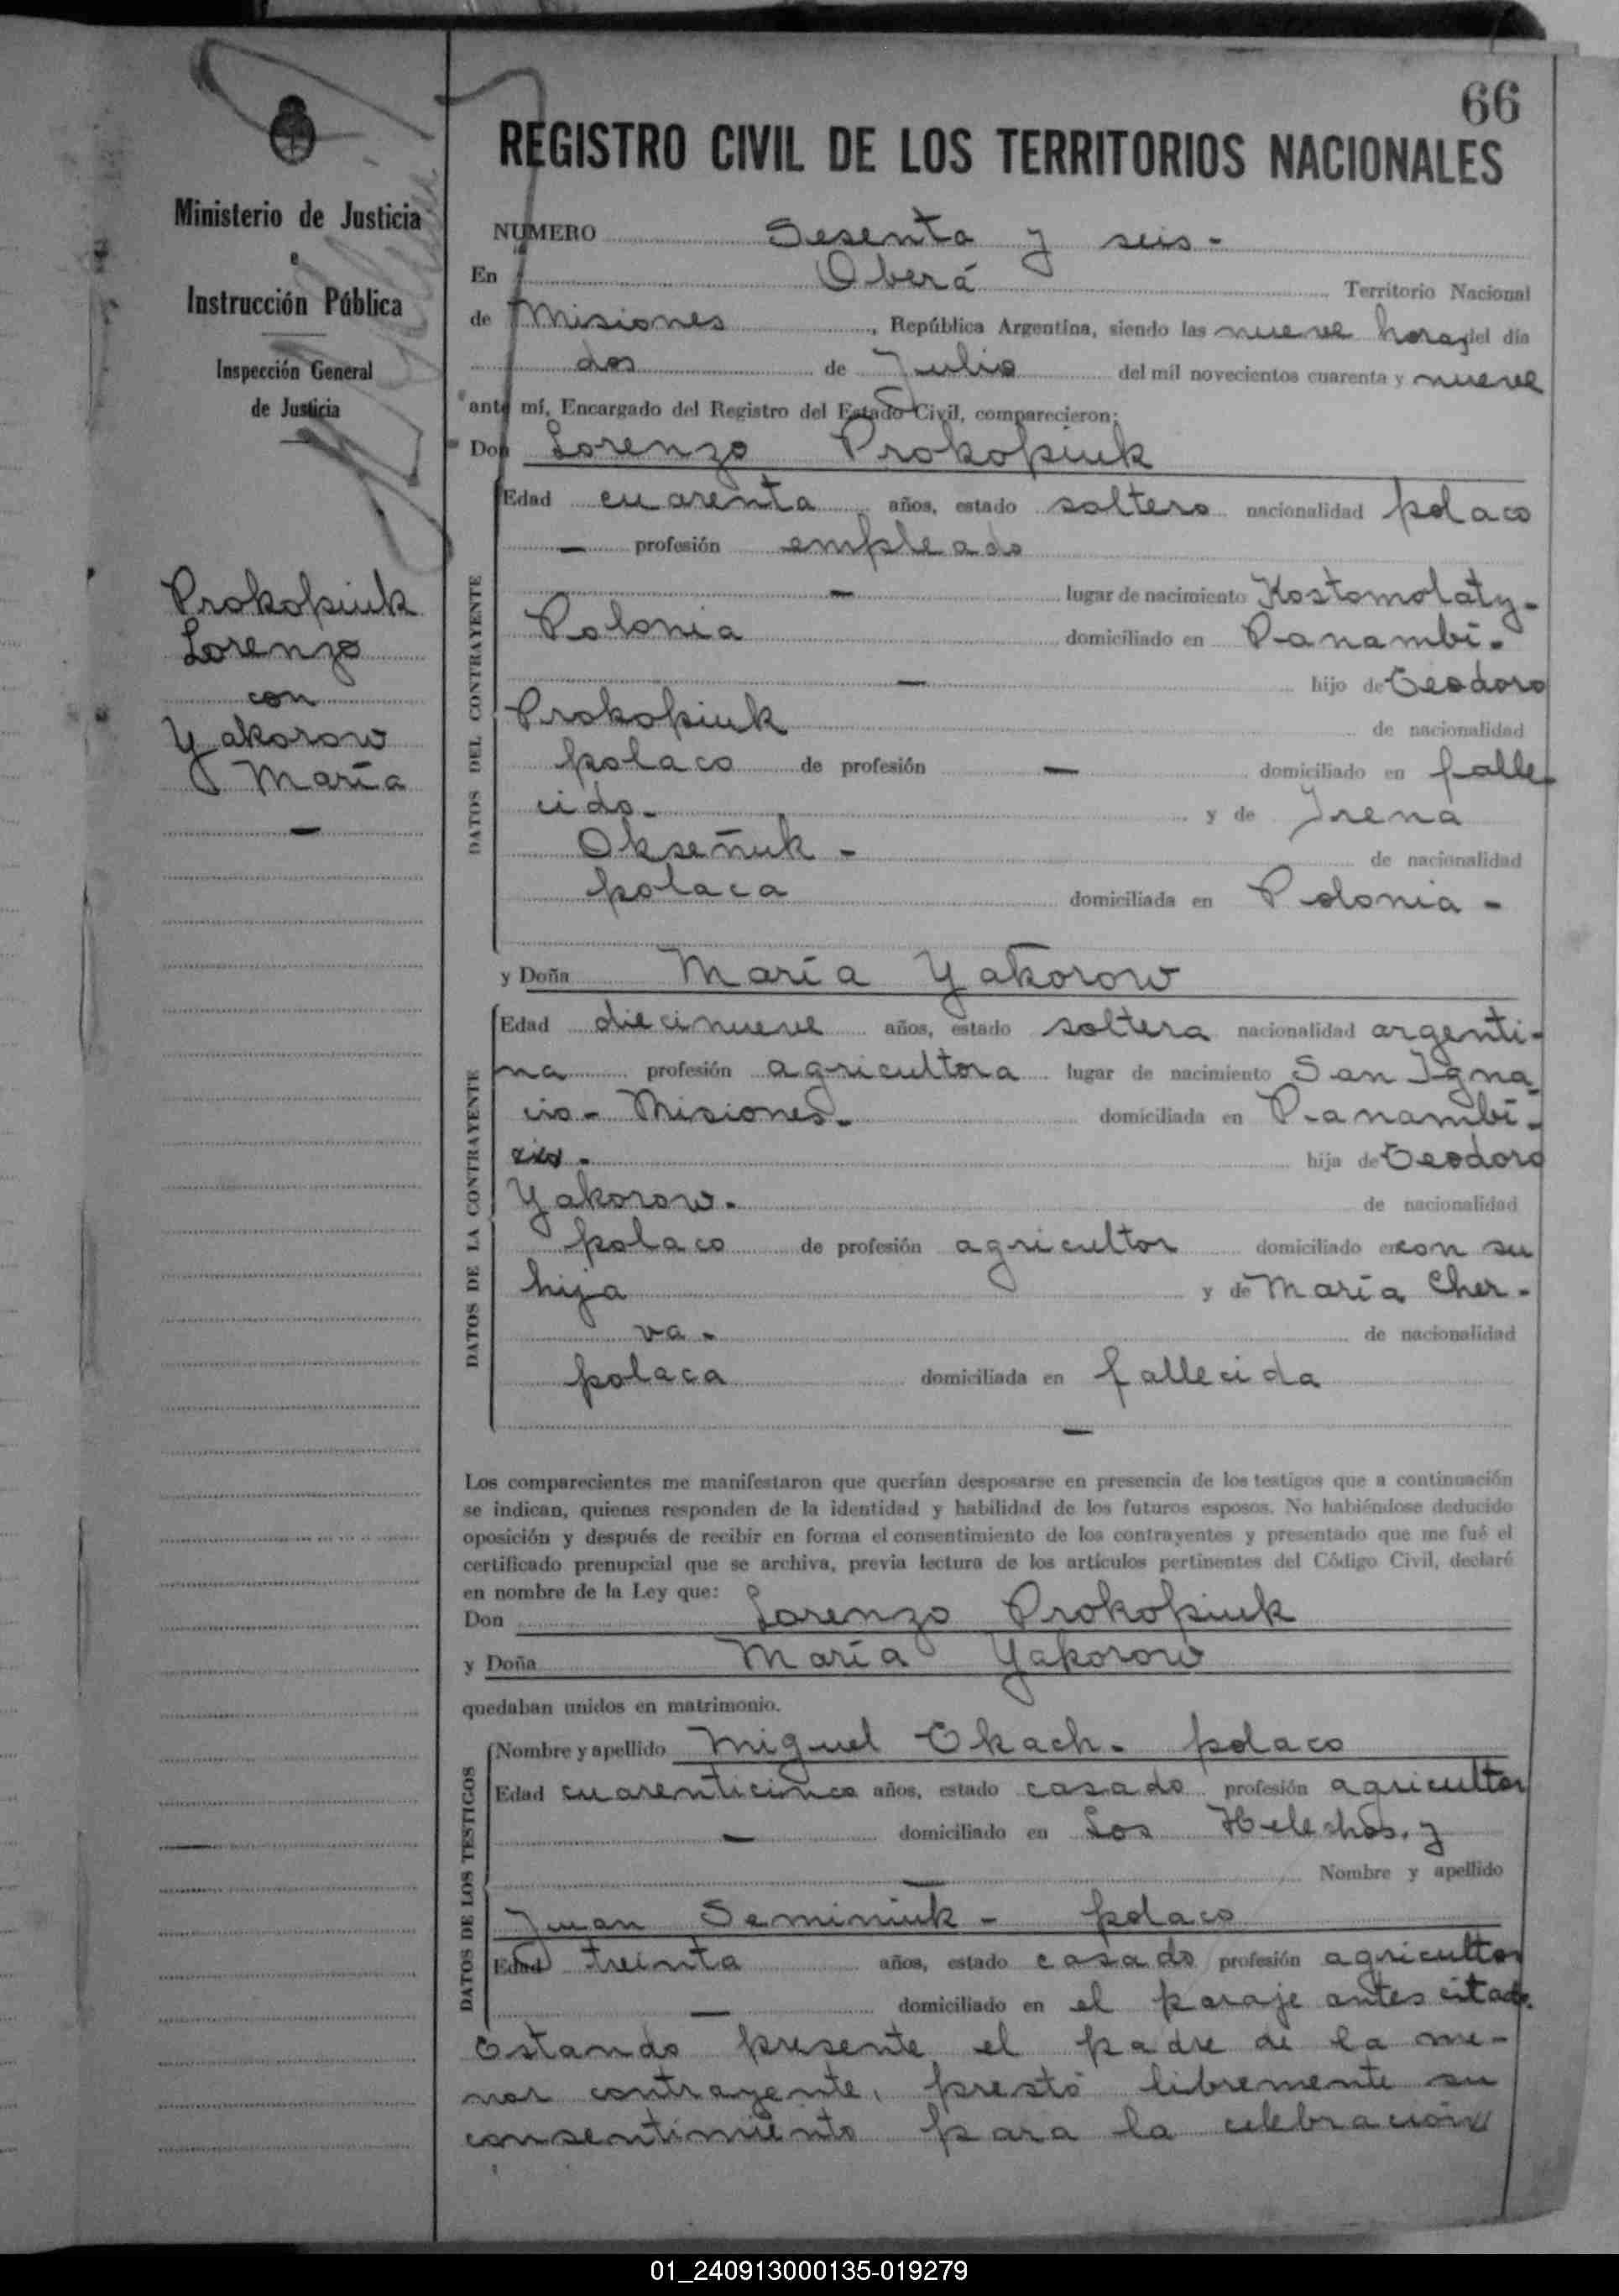 66
REGISTRO CIVIL DE LOS TERRITORIOS NACIONALES
Ministerio de Justicia
e
Instrucción Pública
Inspección General
de Justicia
Prokopiuk
Lorenzo
con
Yakorow
María
NUMERO Sesenta y seis -
En Oberá Territorio Nacional
de Misiones, República Argentina, siendo las nueve horas del día
dos de Julio del mil novecientos cuarenta y nueve
ante mí, Encargado del Registro del Estado Civil, comparecieron:
Don Lorenzo Prokopiuk
DATOS DEL CONTRAYENTE
Edad cuarenta años, estado soltero nacionalidad polaco
— profesión empleado
— lugar de nacimiento Kostomolaty -
Polonia domiciliado en Panambí -
— hijo de Teodoro
Prokopiuk de nacionalidad
polaco de profesión — domiciliado en falle-
cido - y de Irena
Okseñuk - de nacionalidad
polaca domiciliada en Polonia -
y Doña María Yakorow
DATOS DE LA CONTRAYENTE
Edad diecinueve años, estado soltera nacionalidad argenti-
na profesión agricultora lugar de nacimiento San Igna
cio - Misiones - domiciliada en Panambí -
hija de Teodoro
Yakorow - de nacionalidad
polaco de profesión agricultor domiciliado en con su
hija y de María Cher-
va - de nacionalidad
polaca domiciliada en fallecida
—
Los comparecientes me manifestaron que querían desposarse en presencia de los testigos que a continuación
se indican, quienes responden de la identidad y habilidad de los futuros esposos. No habiéndose deducido
oposición y después de recibir en forma el consentimiento de los contrayentes y presentado que me fué el
certificado prenupcial que se archiva, previa lectura de los artículos pertinentes del Código Civil, declaré
en nombre de la Ley que:
Don Lorenzo Prokopiuk
y Doña María Yakorow
quedaban unidos en matrimonio.
DATOS DE LOS TESTIGOS
Nombre y apellido Miguel Okach - polaco
Edad cuarenticinco años, estado casado profesión agricultor
— domiciliado en Los Helechos. y
— Nombre y apellido
Juan Seminiuk - polaco
Edad treinta años, estado casado profesión agricultor
— domiciliado en el paraje antes citado.
Estando presente el padre de la me-
nor contrayente, prestó libremente su
consentimiento para la celebración
01_240913000135-019279